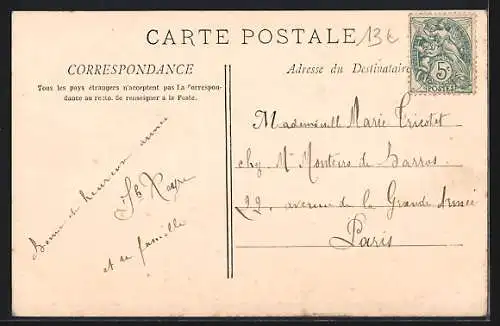 CARTE POSTALE
13€
CORRESPONDANCE
Tous les pays étrangers n'acceptent pas La Correspon-
dance au recto. de renseigner à la Poste.
Bonne et heureuse année
et sa famille
Adresse du Destinataire
5c
POSTES
Mademoiselle Marie Tricotet
chez Mr Monteiro de Barros
22, avenue de la Grande Armée
Paris